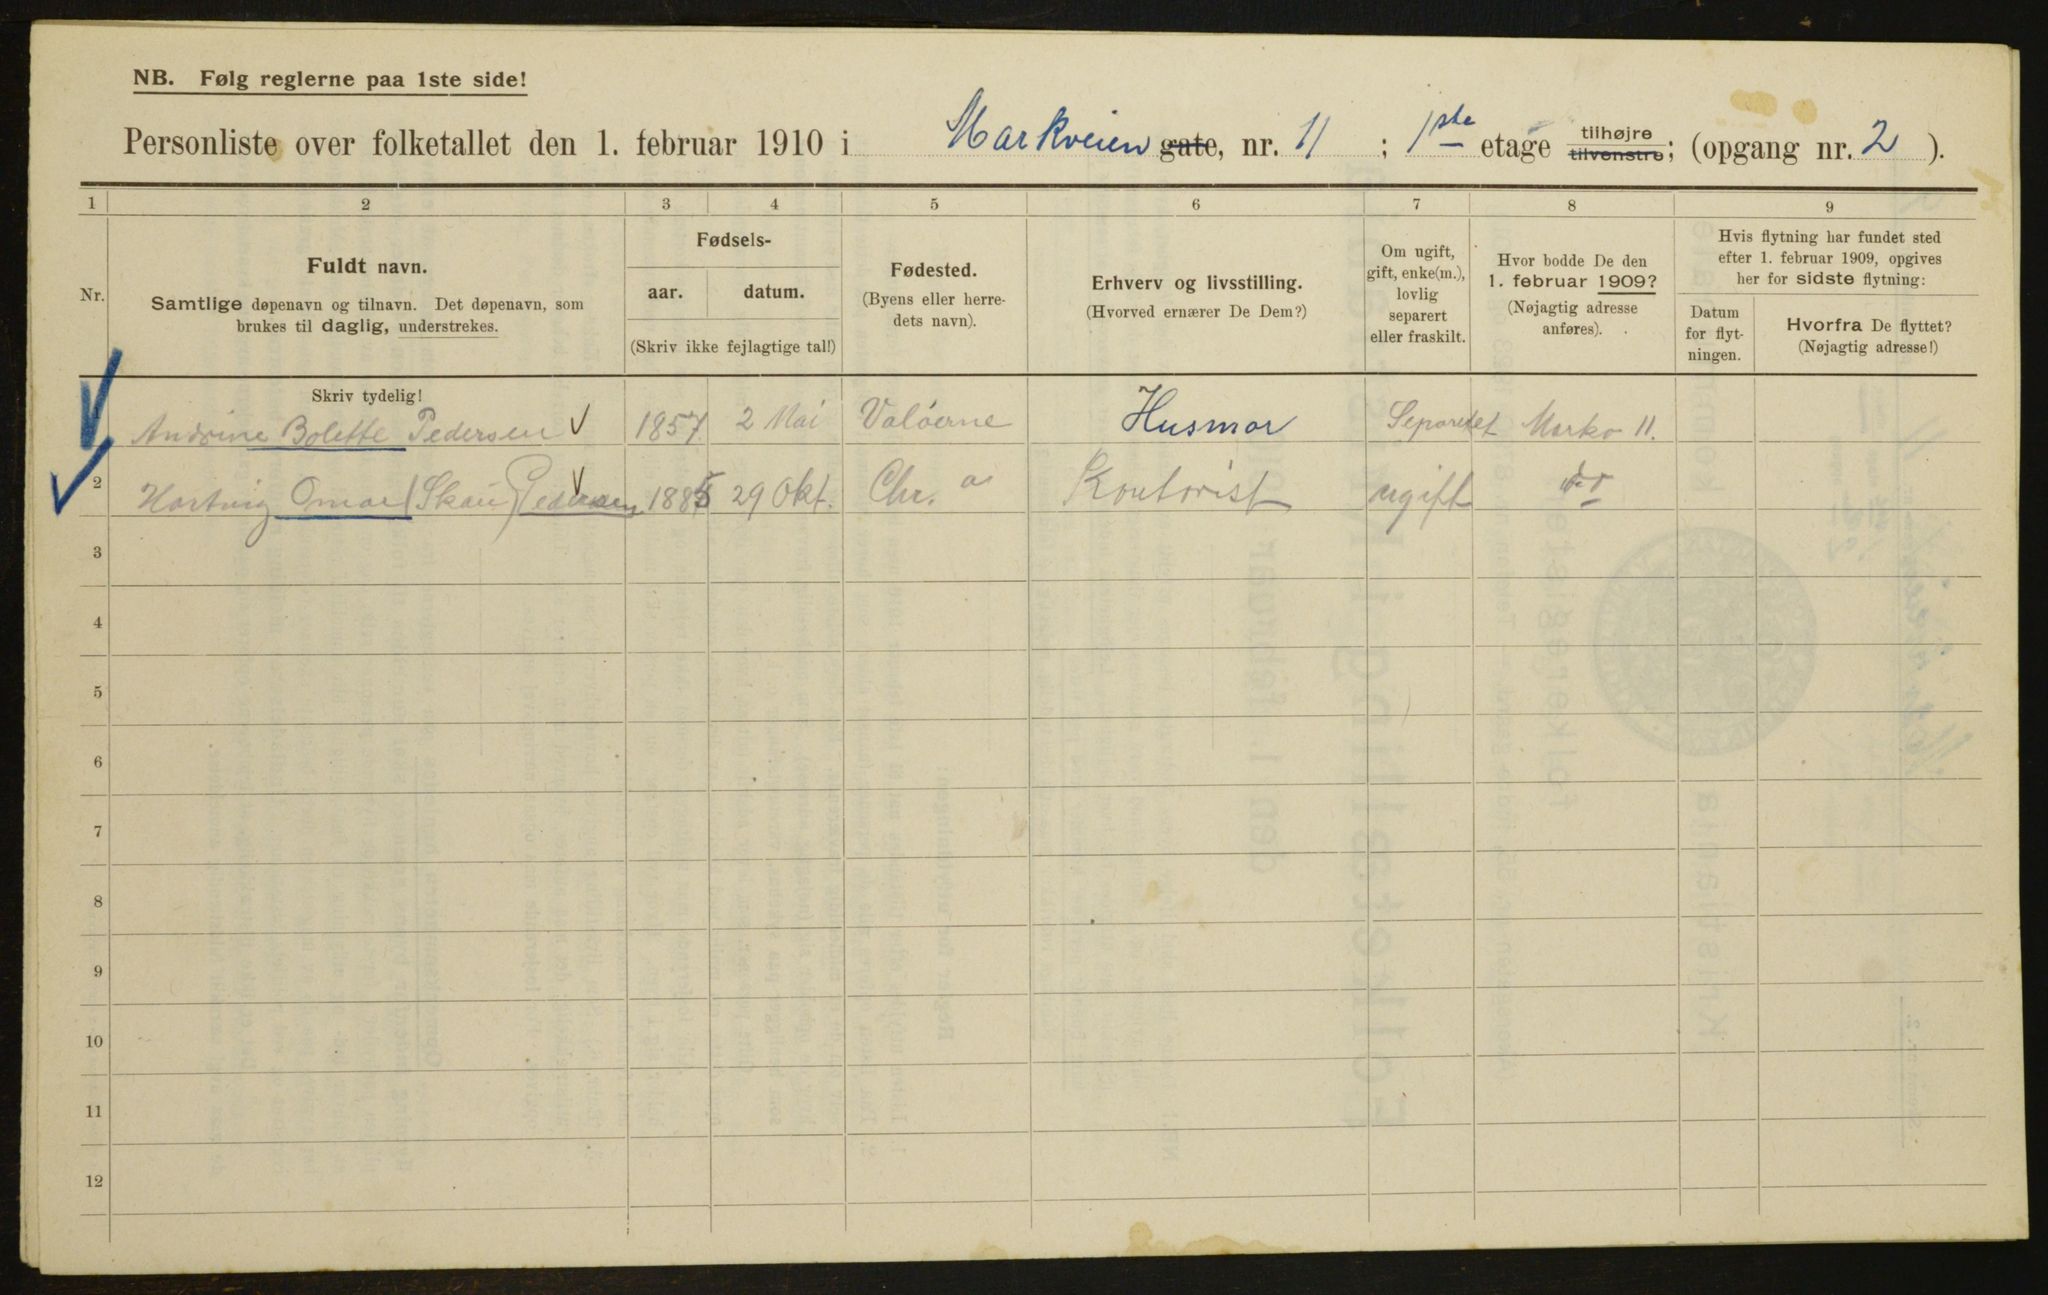 NB. Følg reglerne paa 1ste side!
Personliste over folketallet den 1. februar 1910 i Markveien gate, nr. 11 ; 1ste etage tilhøjre tilvenstre; (opgang nr. 2 ).
1 2 3 4 5 6 7 8 9
Nr.
Fuldt navn.
Samtlige døpenavn og tilnavn. Det døpenavn, som
brukes til daglig, understrekes.
Fødsels-
aar. datum.
(Skriv ikke fejlagtige tal!)
Fødested.
(Byens eller herre-
dets navn).
Erhverv og livsstilling.
(Hvorved ernærer De Dem?)
Om ugift,
gift, enke(m.),
lovlig
separert
eller fraskilt.
Hvor bodde De den
1. februar 1909?
(Nøjagtig adresse
anføres).
Hvis flytning har fundet sted
efter 1. februar 1909, opgives
her for sidste flytning:
Datum
for flyt-
ningen.
Hvorfra De flyttet?
(Nøjagtig adresse!)
Skriv tydelig!
1 Andrine Bolette Pedersen 1857 2 Mai Valöerne Husmor Separetet Markv 11.
2 Hartvig Omar (Skau) Pedersen 1885 29 Okt. Chr. a Kontorist ugift do
3
4
5
6
7
8
9
10
11
12